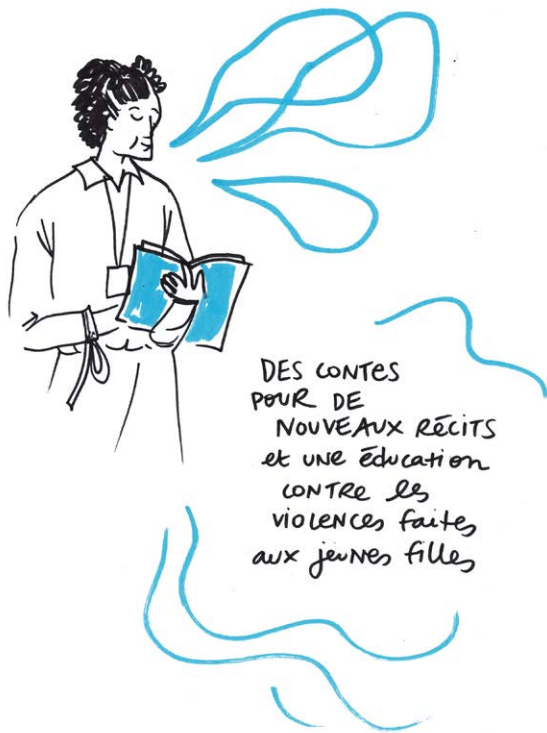 DES CONTES
POUR DE
NOUVEAUX RÉCITS
et UNE éducation
CONTRE les
VIOLENCES faites
aux jeuNes filles